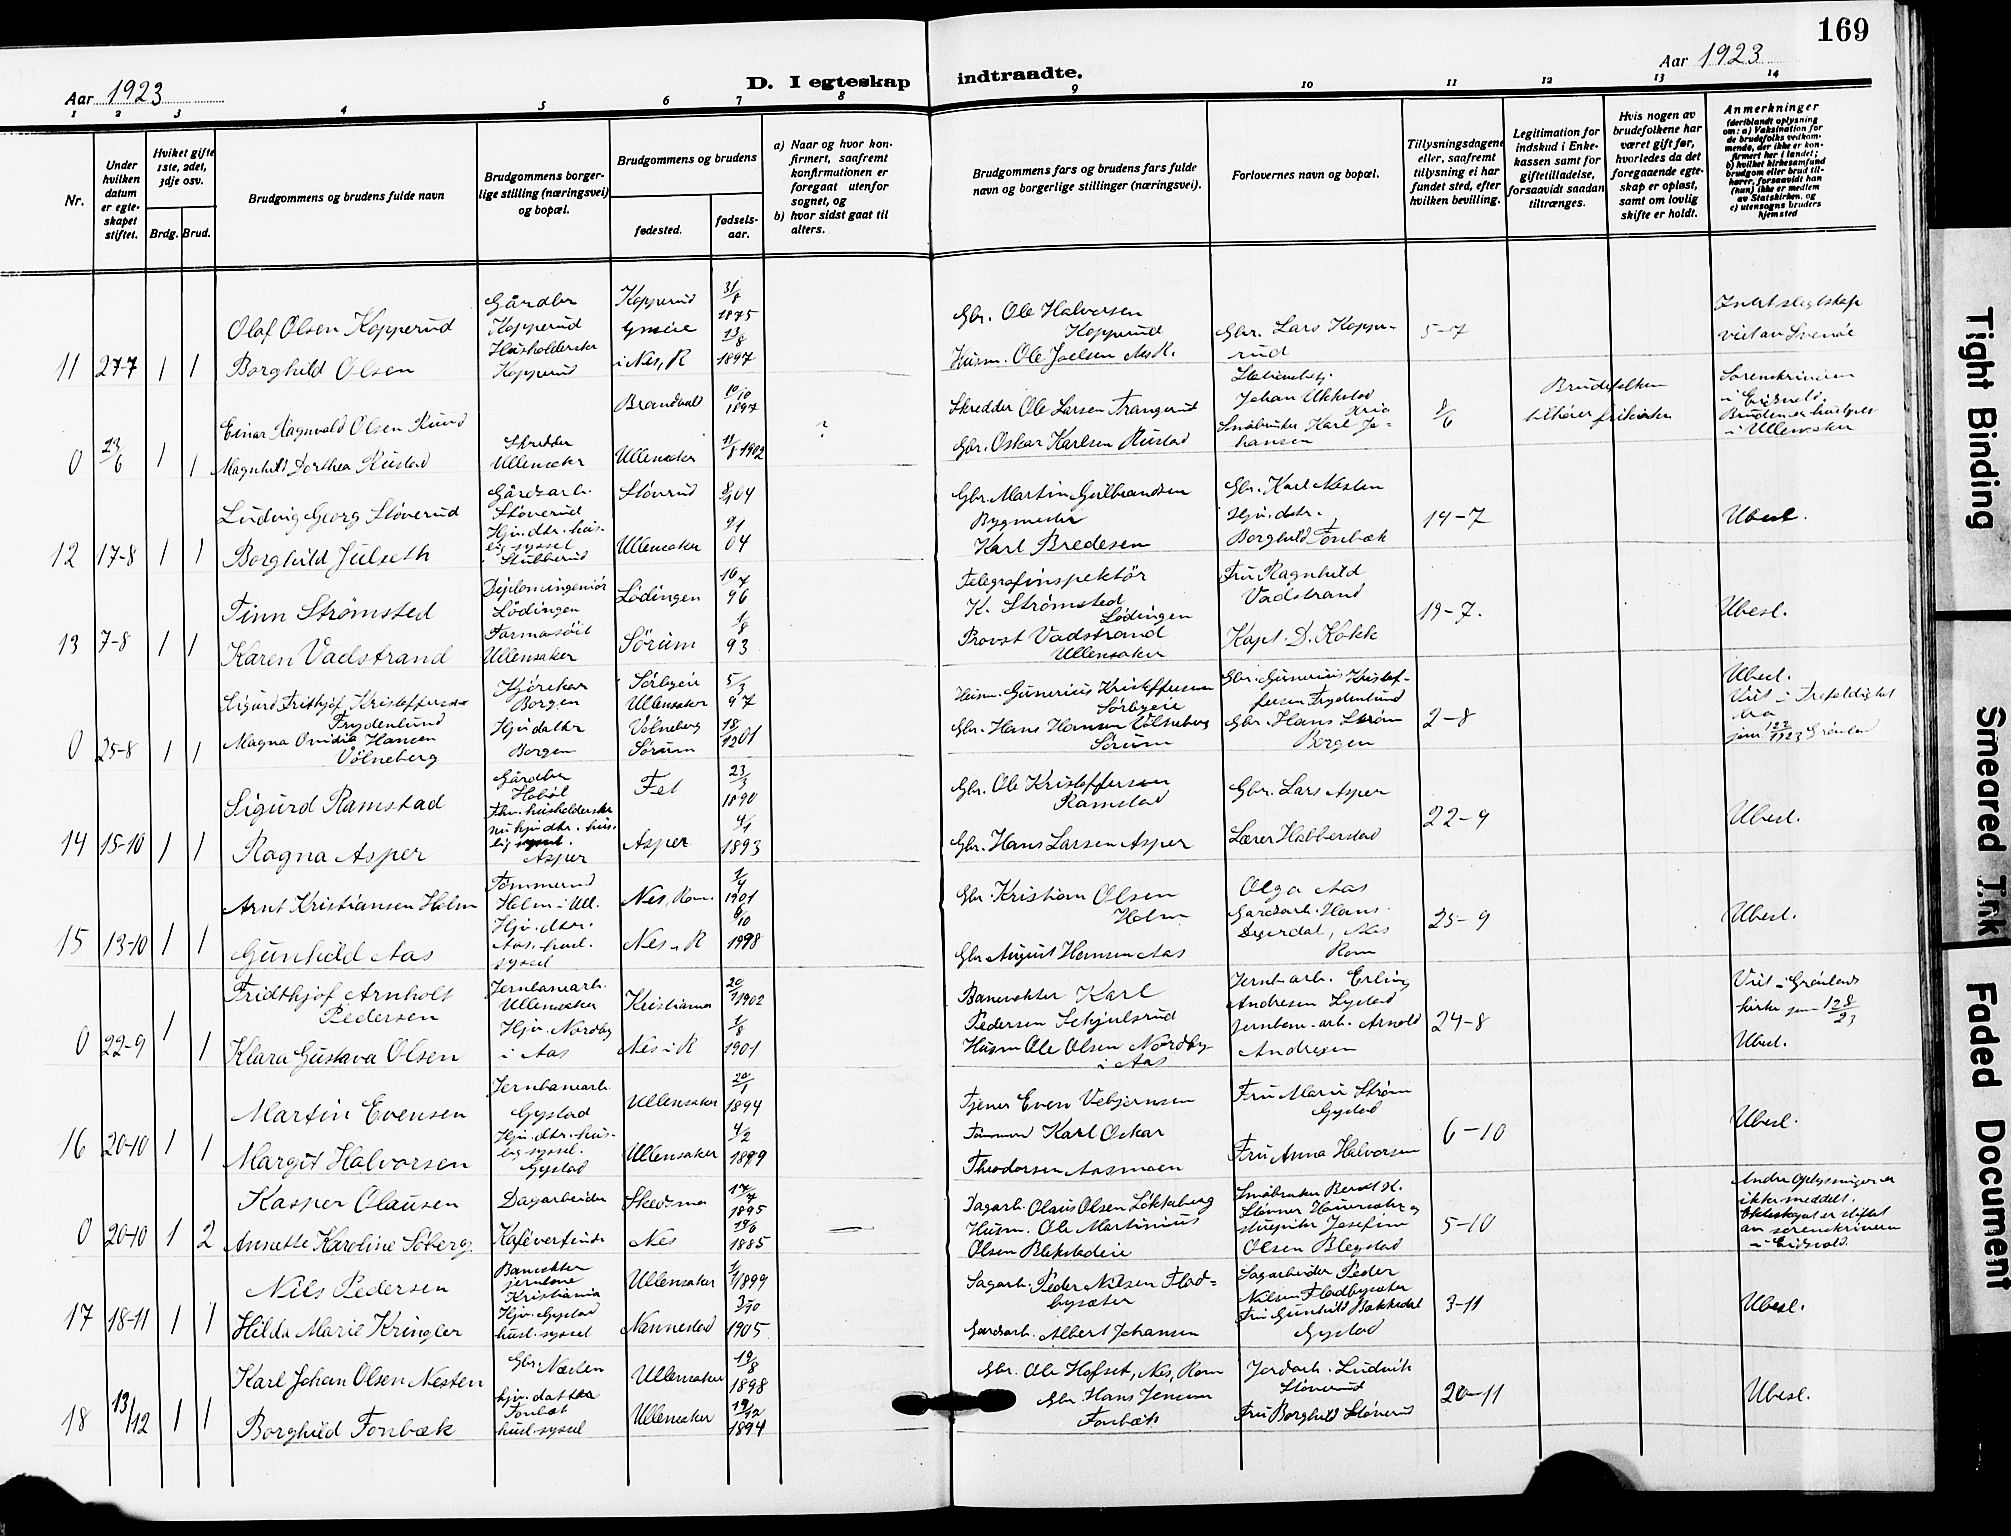 169
Aar 1923
D. I egteskap
indtraadte.
Aar 1923
1 2 3 4 5 6 7 8 9 10 11 12 13 14
Nr.
Under hvilken datum er egteskapet stiftet.
Hviket gifte 1ste, 2det, 3dje osv.
Brdg. Brud.
Brudgommens og brudens fulde navn
Brudgommens borgerlige stilling (næringsvei) og bopæl.
Brudgommens og brudens
fødested.
fødselsaar.
a) Naar og hvor konfirmert, saafremt konfirmationen er foregaat utenfor sognet, og
b) hvor sidst gaat til alters.
Brudgommens fars og brudens fars fulde navn og borgerlige stillinger (næringsvei).
Forlovernes navn og bopæl.
Tillysningsdagene eller, saafremt tillysning ei har fundet sted, efter hvilken bevilling.
Legitimation for indskud i Enkekassen samt for giftetilladelse, forsaavidt saadan tiltrænges.
Hvis nogen av brudefolkene har været gift før, hvorledes da det foregaaende egteskap er opløst, samt om lovlig skifte er holdt.
Anmerkninger
(deriblandt oplysning om: a) Vaksination for de brudefolks vedkommende, der ikke er konfirmert her i landet; b) hvilket kirkesamfund brudgom eller brud tilhører, forsaavidt han (hun) ikke er medlem av Statskirken, og c) utensogns bruders hjemsted
11 27-7 1 1
Olaf Olsen Kopperud
Gårdbr Kopperud
Kopperud
31/8 1875
Gbr. Ole Halvorsen Kopperud
Gbr. Lars Kopperud
5-7
Borghild Olsen
Kopperud
i Nes, R
13/8 1897
Husm. Ole Joelsen Nes R.
0 23/6 1 1
Einar Ragnvald Olsen Ruud
Brandval
10/10 1897
?
Skredder Ole Larsen Trangerud
Johan Ukkelad
8/6
Brudefolken tilhører frikirken
Magnhild Dorthea Rustad
Skredder Ullensaker
Ullensaker
11/8 1902
Gbr. Oskar Karlsen Rustad
Småbruker Karl Johansen
Sorenskriveren i Eidsvold.
i Ullensaker
12 17-8 1 1
Ludvig Georg Støverud
Gårdsarb. Støverud
Støvrud
8/1 04
Gbr. Martin Gulbrandsen
Gbr. Karl Nesten
14-7
Ubesl.
Borghild Julseth
Hjv. dtr. huslig syssel Stubberud
Ullensaker
9/1 04
Bygmester Karl Bredesen
Hjv. dtr. Borghild Fonbæk
13 7-8 1 1
Finn Strømsted
Diplomingeniør Lødingen
Lødingen
16/7 96
Telegrafinspektør K. Strømsted Lødingen
Fru Ragnhild Vadstrand
19-7.
Ubesl.
Karen Vadstrand
Farmasøit Ullensaker
Sørum
1/8 93
Provst Vadstrand Ullensaker
Kapt. D. Kokk
0 25-8 1 1
Sigurd Fridthjof Kristoffersen Frydenlund
Kjørekar Borgen
Sørbyeie Ullensaker
5/3 97
Husm. Gunerius Kristoffersen Sørbyeie
Gbr. Gunerius Kristoffersen Frydenlund
2-8
Ubesl.
Magna Ovidia Hansen Vølneberg
Hjv.datter Borgen
Vølneberg Sørum
Gbr. Hans Hansen Vølneberg Sørum
Gbr. Hans Strøm Borgen
14 15-10 1 1
Sigurd Ramstad
Gårdbr Hobøl
Fet
23/3 1890
Gbr. Ole Kristoffersen Ramstad
Gbr. Lars Asper
22-9
Ubesl.
Ragna Asper
Fhv. husholderske nu hjv. dtr. huslig syssel. Asper
Asper
4/1 1893
Gbr. Hans Larsen Asper
Lærer Habberstad
15 13-10 1 1
Arnt Kristiansen Holm
Tømmermd Holm i Ull.
Nes, Rom.
1/4 1901
Gbr. Kristian Olsen Holm
Olga Aas
25-9
Ubesl.
Gunhild Aas
Hjv. dtr. Aas. husl. syssel
Nes, R
6/10 1898
Gbr August Hansen Aas
Gardsarb. Hans Dyrdal, Nes Rom
0 22-9 1 1
Fridthjof Arnholt Pedersen
Jernbanearb. Ullensaker
Kristiania
20/1 1902
Banevokter Karl Pedersen Schjulsrud
Jernb.arb. Erling Andresen Gystad
24-8
Viet i Grønlands kirke
Klara Gustava Olsen
Hjv. Nordby i Aas
Nes i R
1/8 1901
Husm Ole Olsen Nordby i Aas
Jernban. arb. Arnold Andresen
Ubesl.
16 20-10 1 1
Martin Evensen
Jernbanearb. Gystad
Ullensaker
20/1 1894
Tjener Even Vebjørnsen
Fru Marie Strøm Gystad
6-10
Ubesl.
Margit Halvorsen
Hjv. dtr. huslig syssel. Gystad
Ullensaker
4/2 1899
Tømmermd Karl Oskar Theodorsen Aasmoen
Fru Anna Halvorsen
0 20-10 1 2
Kasper Olausen
Dagarbeider
Skedsmo
17/7 1895
Dagarb. Olaus Olsen Løkkeberg
5-10
Annette Karoline Søberg.
Kafévertinde
Nes
19/6 1885
Husm. Ole Martinius Olsen Blekstadeie
Josefine Olsen Blegstad
Andre oplysninger er ikke meddelt. Ekteskapet er stiftet av sorenskriveren i Eidsvold.
17 18-11 1 1
Nils Pedersen
Banevokter jernbane Kristiania
Ullensaker
1/1 1899
Sagarb. Peder Nilsen Fladbysæter
Sagarbeider Peder Nilsen Fladbysæter
3-11
Ubesl.
Hilda Marie Kringler
Hjv. Gystad husl. syssel
Nannestad
3/10 1905
Gardsarb. Albert Johansen
Fru Gunhild Bakkedal Gystad
18 13/12 1 1
Karl Johan Olsen Nesten
Gbr Nesten
Ullensaker
19/8 1898
Gbr. Ole Hofset, Nes, Rom
Jordarb. Ludvik Støverud
20-11
Ubesl.
Borghild Fonbæk
hjv. datter Fonbæk husl. syssel
Ullensaker
19/12 1894
Gbr. Hans Jensen Fonbæk
Fru Borghild Støverud
Tight Binding
Smeared Ink
Faded Document